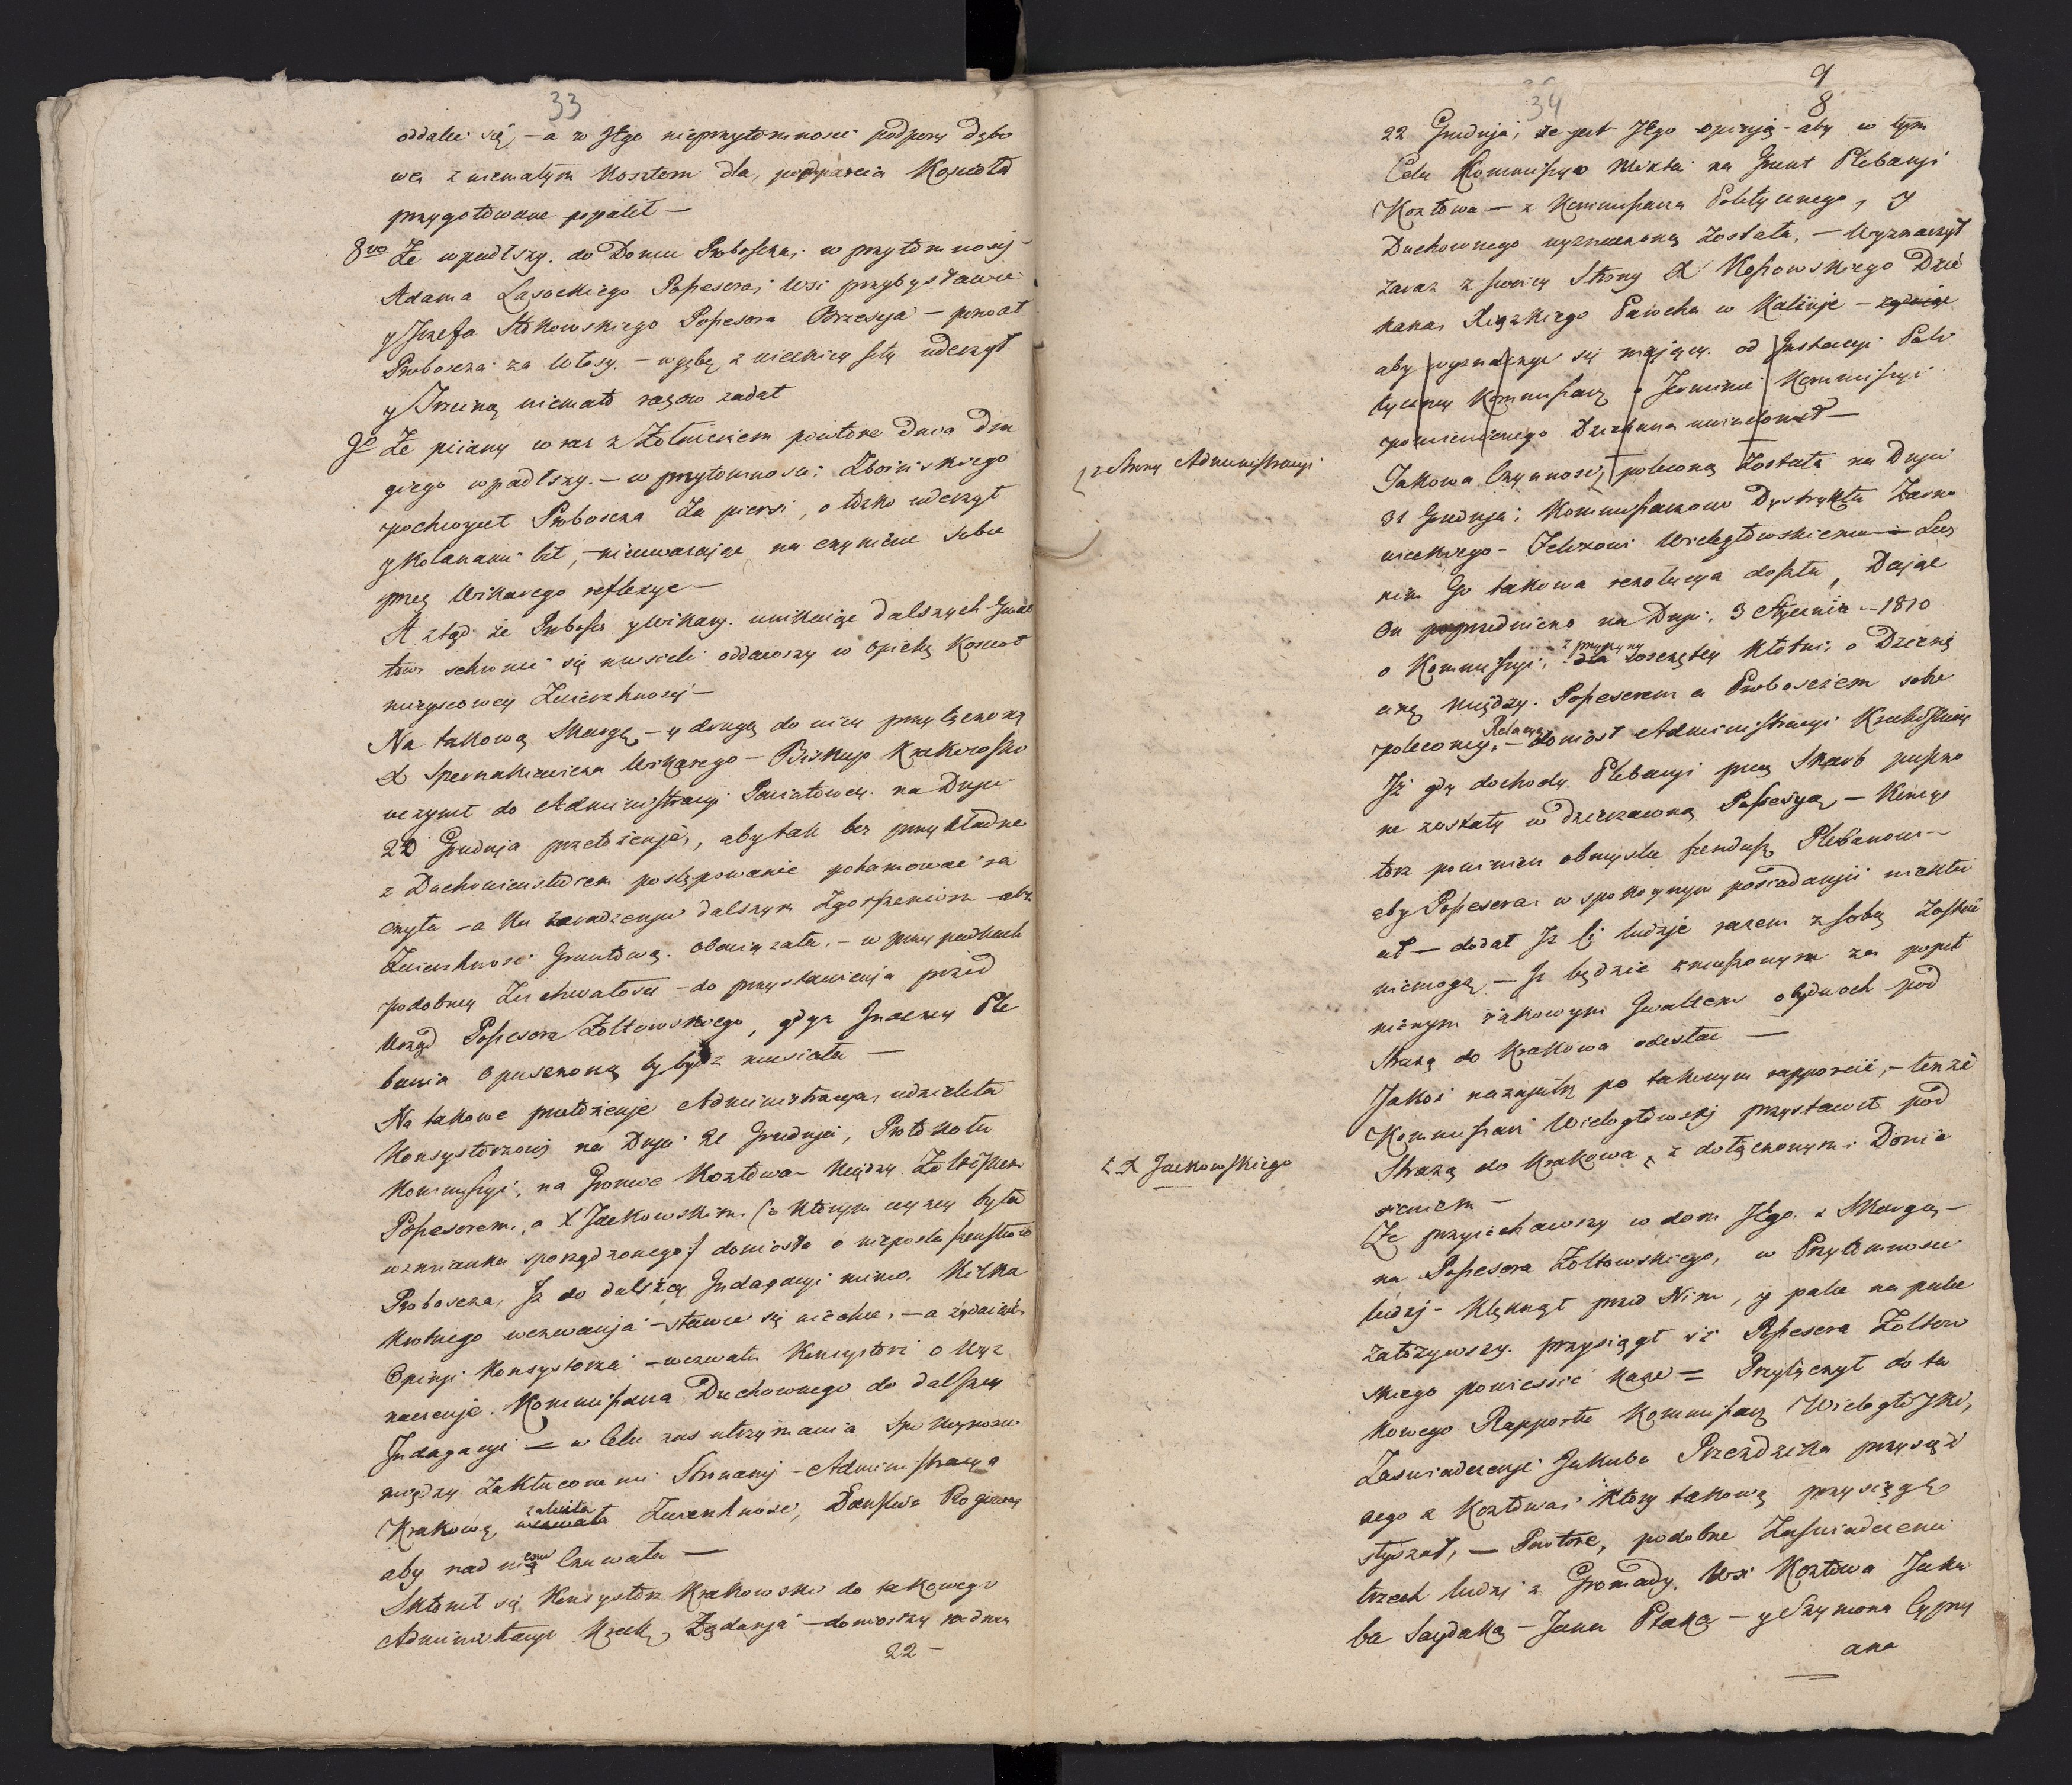 33
oddalił się, — a w Jego nieprzytomności podpory dębo
we z niemałym kosztem dla podparcia Kościoła
przygotowane popalił —
8vo Że wpadłszy do Domu Proboszcza, w przytomności
Adama Lasockiego Possesora Wsi przybysławic
y Jozefa Stokowskiego Possesora Brzescia — porwał
Proboszcza za Włosy, — w gębę z wielkiey siły uderzył
y Trzciną niemało razow zadał
9o Że pijany wraz z Żołnierzem powtore Dnia dru
giego wpadłszy — w przytomności Zboińskiego
pochwycił Proboszcza Za piersi, o łóżko uderzył
y kolanami bił, — nieuważając na czynione sobie
przez Wikarego reflexye —
A ztąd że Probosz y Wikary unikając dalszych Gwał
tow schronić się musieli oddawszy w opiekę Kościoł
mieyscowey Zwierzchności —
Na takową Skargę — y drugą do niey przyłączoną
X Wikarego — Biskup Krakowski
uczynił do Administracyi Powiatowey na Dniu
20 Grudnia przełożenia, aby tak bez przykładne
z Duchowieństwem postępowanie pohamować ra
czyła — a ku zaradzeniu dalszym Zgorszeniom — aby
Zwierzchność Gruntową obowiązała, — w przypadkach
podobney Zuchwałości — do przystawienia przed
Urząd Possesora Żółtowskiego, gdyż Inaczey Ple
bania Opuszczoną by bydź musiała —
Na takowe przełożenie Administracya, udzieliła
Konsystorzowi na Dniu 21 Grudnia, Protokołu
Kommissyi, na Groncie Kozłowa — między Żółtowskim
Possesorem, a X Jackowskim (o którym wyżey była
wzmianka sporządzonego) doniosła o nieposłuszeństwie
Proboszcza, Iż do dalszey Indagacyi mimo kilka
krotnego wezwania — stawić się niechce, — a żądaiąc
Opinii Konsystorza — wezwała Konsystorz o Wyz
naczenie Kommissarza Duchownego do dalszey
Indagacyi — w Celu zaś utrzymania Spokoyności
między Zakłuconemi Stronami — Administracya
Krakowa wezwała zaleciła Zwierzchność, Państwa Xiąż
aby nad nią czuwała —
Skłonił się Konsystorz Krakowski do takowego
Administracyi Krak: Żądania — doniosłszy na dniu
22 —

34
9
8
22 Grudnia, że jest Jego opinią — aby w tym
Celu Kommissya Mixta na Grunt Plebanii
Kozłowa — z Kommissarza Politycznego, y
Duchownego wyznaczoną Została, — Wyznaczył
zaraz z swoiey Strony X Kossowskiego Dzie
kana Xiązkiego Parocha w Kalinie —
aby wyznaczyć się maiący od Instancyi Poli
tyczney Kommissarz o Terminie Kommissyi
pomienionego Dziekana uwiadomił —
z Strony Administracyi
Takowa Czynność, poleconą Została na Dniu
31 Grudnia, Kommissarzowi Dystryktu Żarno
wieckiego — Felixowi Wielogłowskiemu — Lecz
nim Go takowa rezolucya doszła, Dając
On poprzedniczo na Dniu 3 Stycznia — 1810
o Kommissyi, dla z przyczyny wszczętey kłótni, o Dziesię
cinę między Possesorem a Proboszczem sobie
poleconey, — Relacyą doniosł Administracyi Krakowskiey
Iż gdy dochody Plebanii przez Skarb puszczo
ne zostały w dzierżawną Possesyą, — Konsys
torz powinien obmyślić fundusz Plebanowi —
aby Possesora w spokoynym posiadaniu niekłu
cił — dodał Iż Ci ludzie razem z sobą Zostać
niemogą — Iż będzie zmuszonym za popeł
nionym iakowym Gwałtem obydwoch pod
Strażą do Krakowa odesłać —
Jakoż nazajutrz po takowym rapporcie, — tenże
Kommissarz Wielogłowski przystawił pod
X Jackowskiego
Strażą do Krakowa, z dołączonym Donie
sieniem —
Że przyiechawszy w dom Jego z Skargą —
na Possesora Żółtowskiego, w Przytomności
ludzi — klęknął przed Nim, y palce na palce
założywszy przysiągł iż Possesora Żółtow
skiego powiesić każe = Przyłączył do ta
kowego Rapportu Kommissarz Wielogłowski,
Zaświadczenie Jakuba Przezdzika przysięż
nego z Kozłowa, który takową przysięgę
słyszał, — Powtore, podobne Zaświadczenie
trzech ludzi z Gromady, Wsi Kozłowa Jaku
ba Saydaka — Jana Ptaka — y Szymona Cypry
ana